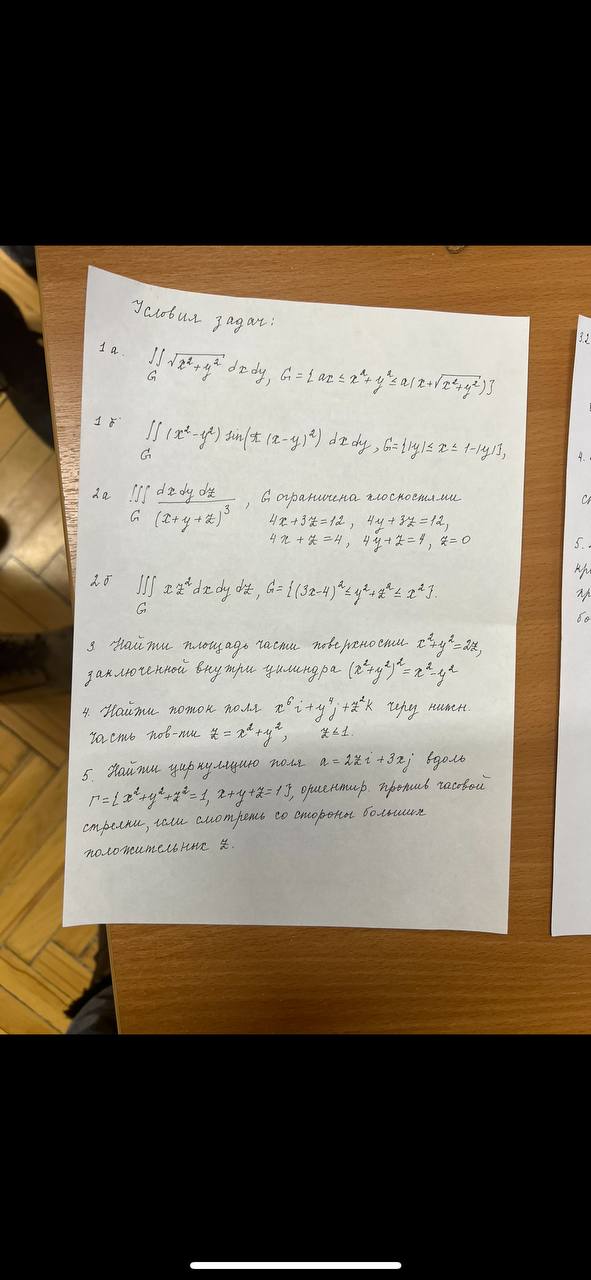 Условия задач:
1а. ∬_G √(x²+y²) dx dy, G = {ax ≤ x²+y² ≤ a(x+√(x²+y²))}
1б ∬_G (x²-y²) sin(π(x-y)²) dx dy, G={|y| ≤ x ≤ 1-|y|},
2а ∭_G dx dy dz / (x+y+z)³, G ограничена плоскостями
4x+3z=12, 4y+3z=12,
4x+z=4, 4y+z=4, z=0
2б ∭_G xz² dx dy dz, G={(3x-4)² ≤ y²+z² ≤ x²}.
3. Найти площадь части поверхности x²+y²=2z,
заключенной внутри цилиндра (x²+y²)²=x²-y²
4. Найти поток поля x⁶i+y⁴j+z²k через нижн.
часть пов-ти z=x²+y², z≤1.
5. Найти циркуляцию поля a=2zi+3xj вдоль
Г={x²+y²+z²=1, x+y+z=1}, ориентир. против часовой
стрелки, если смотреть со стороны больших
положительных z.
3.2
4.
5.